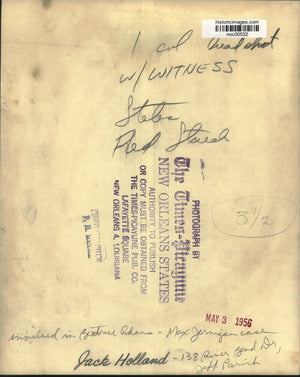 historicimages.com
noo30532
1 col headshot
W/WITNESS
States
Red
PHOTOGRAPH BY
The Times-Picayune
NEW ORLEANS STATES
AUTHORITY TO PUBLISH
OR COPY MUST BE OBTAINED FROM
THE TIMES-PICAYUNE PUB. CO.
LAFAYETTE SQUARE
NEW ORLEANS 4, LOUISIANA
3 1/2
MAY 3 1956
involved in Beatrice Adams - Max Jernigan case
Jack Holland - 138 River Road Dr,
Jeff Parish